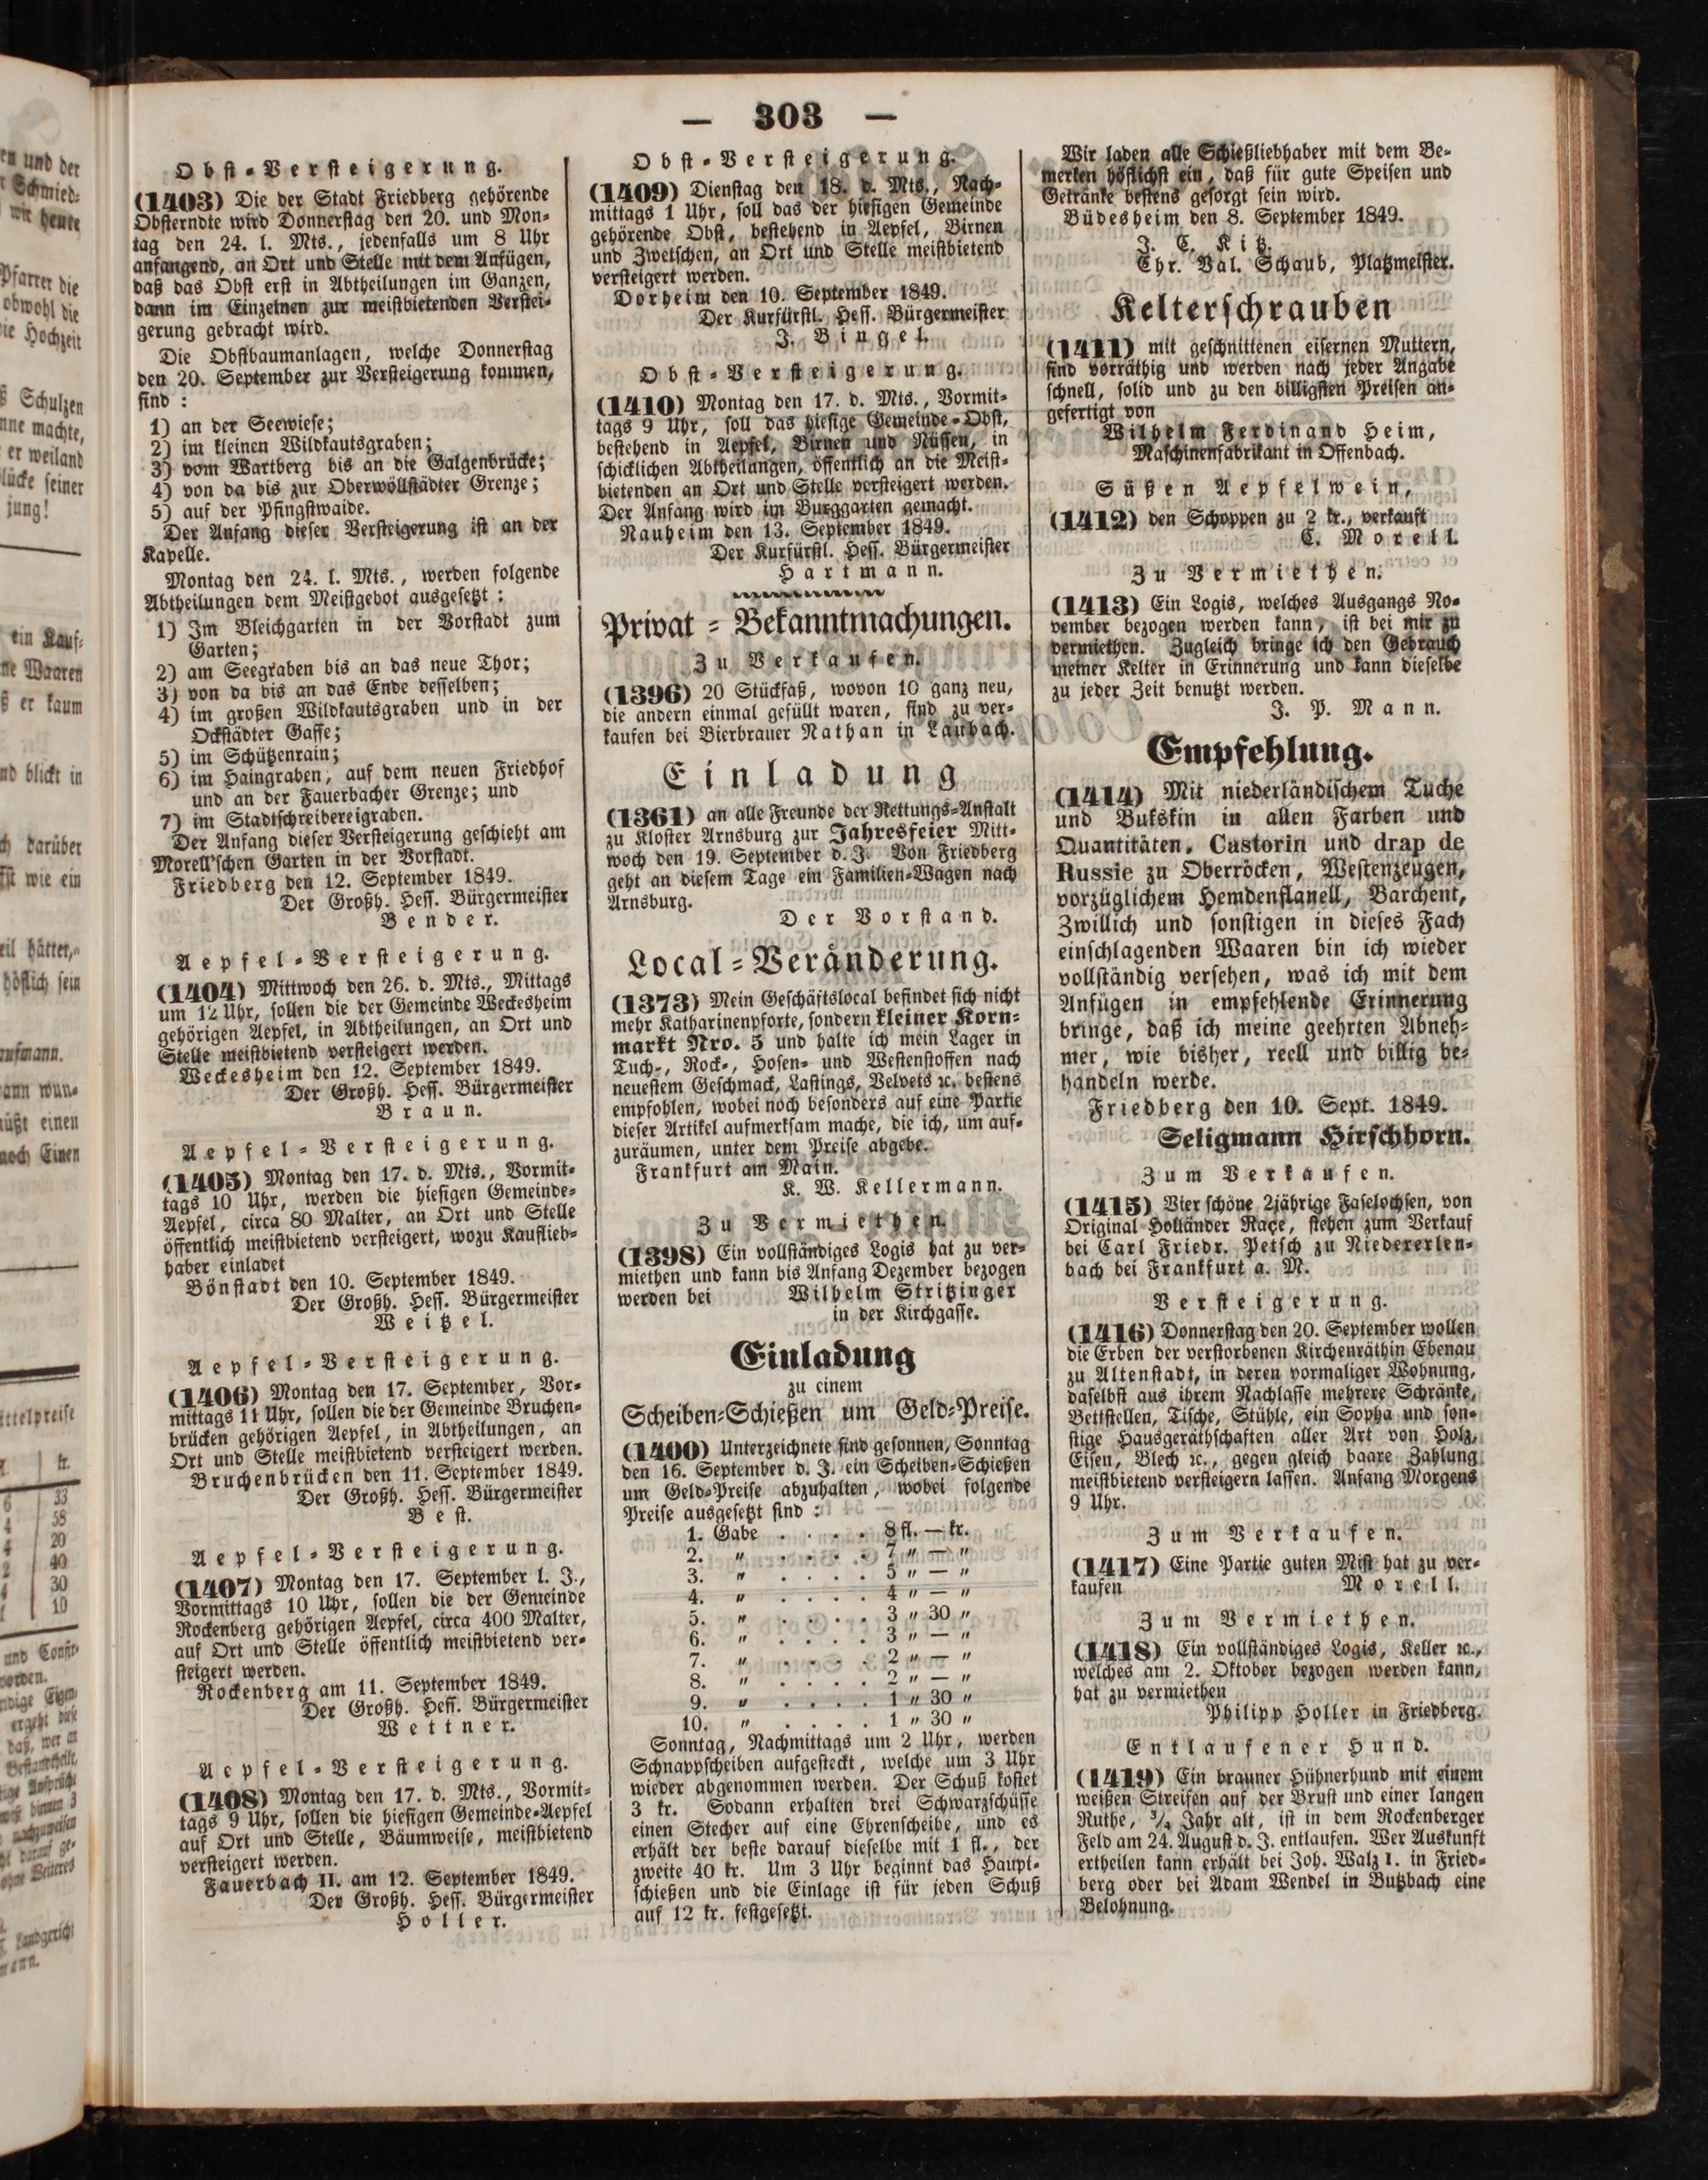 — 303 —
Obst-Versteigerung.
(1403) Die der Stadt Friedberg gehörende
Obsterndte wird Donnerstag den 20. und Mon-
tag den 24. l. Mts., jedenfalls um 8 Uhr
anfangend, an Ort und Stelle mit dem Anfügen,
daß das Obst erst in Abtheilungen im Ganzen,
dann im Einzelnen zur meistbietenden Verstei-
gerung gebracht wird.
Die Obstbaumanlagen, welche Donnerstag
den 20. September zur Versteigerung kommen,
sind :
1) an der Seewiese;
2) im kleinen Wildkautsgraben;
3) vom Wartberg bis an die Galgenbrücke;
4) von da bis zur Oberwöllstädter Grenze;
5) auf der Pfingstwaide.
Der Anfang dieser Versteigerung ist an der
Kapelle.
Montag den 24. l. Mts., werden folgende
Abtheilungen dem Meistgebot ausgesetzt :
1) Im Bleichgarten in der Vorstadt zum
Garten;
2) am Seegraben bis an das neue Thor;
3) von da bis an das Ende desselben;
4) im großen Wildkautsgraben und in der
Ockstädter Gasse;
5) im Schützenrain;
6) im Haingraben, auf dem neuen Friedhof
und an der Fauerbacher Grenze; und
7) im Stadtschreibereigraben.
Der Anfang dieser Versteigerung geschieht am
Morell'schen Garten in der Vorstadt.
Friedberg den 12. September 1849.
Der Großh. Hess. Bürgermeister
Bender.
Aepfel-Versteigerung.
(1404) Mittwoch den 26. d. Mts., Mittags
um 12 Uhr, sollen die der Gemeinde Weckesheim
gehörigen Aepfel, in Abtheilungen, an Ort und
Stelle meistbietend versteigert werden.
Weckesheim den 12. September 1849.
Der Großh. Hess. Bürgermeister
Braun.
Aepfel-Versteigerung.
(1405) Montag den 17. d. Mts., Vormit-
tags 10 Uhr, werden die hiesigen Gemeinde-
Aepfel, circa 80 Malter, an Ort und Stelle
öffentlich meistbietend versteigert, wozu Kauflieb-
haber einladet
Bönstadt den 10. September 1849.
Der Großh. Hess. Bürgermeister
Weitzel.
Aepfel-Versteigerung.
(1406) Montag den 17. September, Vor-
mittags 11 Uhr, sollen die der Gemeinde Bruchen-
brücken gehörigen Aepfel, in Abtheilungen, an
Ort und Stelle meistbietend versteigert werden.
Bruchenbrücken den 11. September 1849.
Der Großh. Hess. Bürgermeister
Best.
Aepfel-Versteigerung.
(1407) Montag den 17. September l. J.,
Vormittags 10 Uhr, sollen die der Gemeinde
Rockenberg gehörigen Aepfel, circa 400 Malter,
auf Ort und Stelle öffentlich meistbietend ver-
steigert werden.
Rockenberg am 11. September 1849.
Der Großh. Hess. Bürgermeister
Wettner.
Aepfel-Versteigerung.
(1408) Montag den 17. d. Mts., Vormit-
tags 9 Uhr, sollen die hiesigen Gemeinde-Aepfel
auf Ort und Stelle, Bäumweise, meistbietend
versteigert werden.
Fauerbach II. am 12. September 1849.
Der Großh. Hess. Bürgermeister
Holler.
Obst-Versteigerung.
(1409) Dienstag den 18. d. Mts., Nach-
mittags 1 Uhr, soll das der hiesigen Gemeinde
gehörende Obst, bestehend in Aepfel, Birnen
und Zwetschen, an Ort und Stelle meistbietend
versteigert werden.
Dorheim den 10. September 1849.
Der Kurfürstl. Hess. Bürgermeister
J. Bingel.
Obst-Versteigerung.
(1410) Montag den 17. d. Mts., Vormit-
tags 9 Uhr, soll das hiesige Gemeinde-Obst,
bestehend in Aepfel, Birnen und Nüssen, in
schicklichen Abtheilungen, öffentlich an die Meist-
bietenden an Ort und Stelle versteigert werden.
Der Anfang wird im Burggarten gemacht.
Nauheim den 13. September 1849.
Der Kurfürstl. Hess. Bürgermeister
Hartmann.
Privat-Bekanntmachungen.
Zu Verkaufen.
(1396) 20 Stückfaß, wovon 10 ganz neu,
die andern einmal gefüllt waren, sind zu ver-
kaufen bei Bierbrauer Nathan in Laubach.
Einladung
(1361) an alle Freunde der Rettungs-Anstalt
zu Kloster Arnsburg zur Jahresfeier Mitt-
woch den 19. September d. J. Von Friedberg
geht an diesem Tage ein Familien-Wagen nach
Arnsburg.
Der Vorstand.
Local-Veränderung.
(1373) Mein Geschäftslocal befindet sich nicht
mehr Katharinenpforte, sondern kleiner Korn-
markt Nro. 5 und halte ich mein Lager in
Tuch-, Rock-, Hosen- und Westenstoffen nach
neuestem Geschmack, Lastings, Velvets ꝛc. bestens
empfohlen, wobei noch besonders auf eine Partie
dieser Artikel aufmerksam mache, die ich, um auf-
zuräumen, unter dem Preise abgebe.
Frankfurt am Main.
K. W. Kellermann.
Zu Vermiethen.
(1398) Ein vollständiges Logis hat zu ver-
miethen und kann bis Anfang Dezember bezogen
werden bei Wilhelm Stritzinger
in der Kirchgasse.
Einladung
zu einem
Scheiben-Schießen um Geld-Preise.
(1400) Unterzeichnete sind gesonnen, Sonntag
den 16. September d. J. ein Scheiben-Schießen
um Geld-Preise abzuhalten, wobei folgende
Preise ausgesetzt sind :
1. Gabe . . . . 8 fl. — kr.
2. " . . . . 7 " — "
3. " . . . . 5 " — "
4. " . . . . 4 " — "
5. " . . . . 3 " 30 "
6. " . . . . 3 " — "
7. " . . . . 2 " — "
8. " . . . . 2 " — "
9. " . . . . 1 " 30 "
10. " . . . . 1 " 30 "
Sonntag, Nachmittags um 2 Uhr, werden
Schnappscheiben aufgesteckt, welche um 3 Uhr
wieder abgenommen werden. Der Schuß kostet
3 kr. Sodann erhalten drei Schwarzschüsse
einen Stecher auf eine Ehrenscheibe, und es
erhält der beste darauf dieselbe mit 1 fl., der
zweite 40 kr. Um 3 Uhr beginnt das Haupt-
schießen und die Einlage ist für jeden Schuß
auf 12 kr. festgesetzt.
Wir laden alle Schießliebhaber mit dem Be-
merken höflichst ein, daß für gute Speisen und
Getränke bestens gesorgt sein wird.
Büdesheim den 8. September 1849.
J. C. Kitz.
Chr. Val. Schaub, Platzmeister.
Kelterschrauben
(1411) mit geschnittenen eisernen Muttern,
sind vorräthig und werden nach jeder Angabe
schnell, solid und zu den billigsten Preisen an-
gefertigt von
Wilhelm Ferdinand Heim,
Maschinenfabrikant in Offenbach.
Süßen Aepfelwein,
(1412) den Schoppen zu 2 kr., verkauft
C. Morell.
Zu Vermiethen.
(1413) Ein Logis, welches Ausgangs No-
vember bezogen werden kann, ist bei mir zu
vermiethen. Zugleich bringe ich den Gebrauch
meiner Kelter in Erinnerung und kann dieselbe
zu jeder Zeit benutzt werden.
J. P. Mann.
Empfehlung.
(1414) Mit niederländischem Tuche
und Bukskin in allen Farben und
Quantitäten, Castorin und drap de
Russie zu Oberröcken, Westenzeugen,
vorzüglichem Hemdenflanell, Barchent,
Zwillich und sonstigen in dieses Fach
einschlagenden Waaren bin ich wieder
vollständig versehen, was ich mit dem
Anfügen in empfehlende Erinnerung
bringe, daß ich meine geehrten Abneh-
mer, wie bisher, reell und billig be-
handeln werde.
Friedberg den 10. Sept. 1849.
Seligmann Hirschhorn.
Zum Verkaufen.
(1415) Vier schöne 2jährige Faselochsen, von
Original Holländer Raçe, stehen zum Verkauf
bei Carl Friedr. Petsch zu Niedererlen-
bach bei Frankfurt a. M.
Versteigerung.
(1416) Donnerstag den 20. September wollen
die Erben der verstorbenen Kirchenräthin Ebenau
zu Altenstadt, in deren vormaliger Wohnung,
daselbst aus ihrem Nachlasse mehrere Schränke,
Bettstellen, Tische, Stühle, ein Sopha und son-
stige Hausgeräthschaften aller Art von Holz,
Eisen, Blech ꝛc., gegen gleich baare Zahlung
meistbietend versteigern lassen. Anfang Morgens
9 Uhr.
Zum Verkaufen.
(1417) Eine Partie guten Mist hat zu ver-
kaufen Morell.
Zum Vermiethen.
(1418) Ein vollständiges Logis, Keller ꝛc.,
welches am 2. Oktober bezogen werden kann,
hat zu vermiethen
Philipp Holler in Friedberg.
Entlaufener Hund.
(1419) Ein brauner Hühnerhund mit einem
weißen Streifen auf der Brust und einer langen
Ruthe, ¾ Jahr alt, ist in dem Rockenberger
Feld am 24. August d. J. entlaufen. Wer Auskunft
ertheilen kann erhält bei Joh. Walz I. in Fried-
berg oder bei Adam Wendel in Butzbach eine
Belohnung.